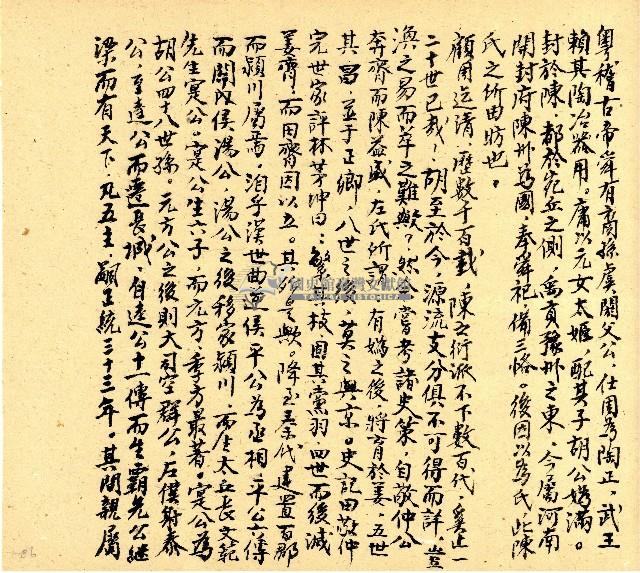 粵稽古帝舜有裔孫虞閼父公,仕周為陶正,武王
賴其陶冶器用。庸以元女太姬,配其子胡公媯滿。
封於陳,都於宛丘之側,禹貢豫州之東,今屬河南
開封府陳州為國,奉舜祀,備三恪。後因以為氏,此陳
氏之所由昉也。
顧周迄清,歷數千百載,陳之衍派不下數百代,奚止一
二十世已哉,胡至於今,源流支分俱不可得而詳,豈
渙之易而萃之難歟?然嘗考諸史策,自敬仲公
奔齊而陳益盛,左氏所謂,有媯之後,將育於姜,五世
其昌,並于正卿,八世之後,莫之與京。史記田敬仲
完世家評林茅坤曰:繁其枝,固其黨羽,四世而後滅
姜齊,而田齊因以立。其然歟。降至秦代,建置百郡
而潁川屬焉,洎乎漢世曲逆侯平公為丞相,平公六傳
而關內侯湯公,湯公之後移家潁川,而生太丘長文範
先生寔公。寔公生六子,而元方、季方最著。寔公為
胡公四十八世孫。元方公之後則大司空群公,左僕射泰
公,至逵公而遷長城,自逵公十一傳而生霸先公繼
梁而有天下,凡五主,嗣王統三十三年。其間親屬
國史館臺灣文獻館